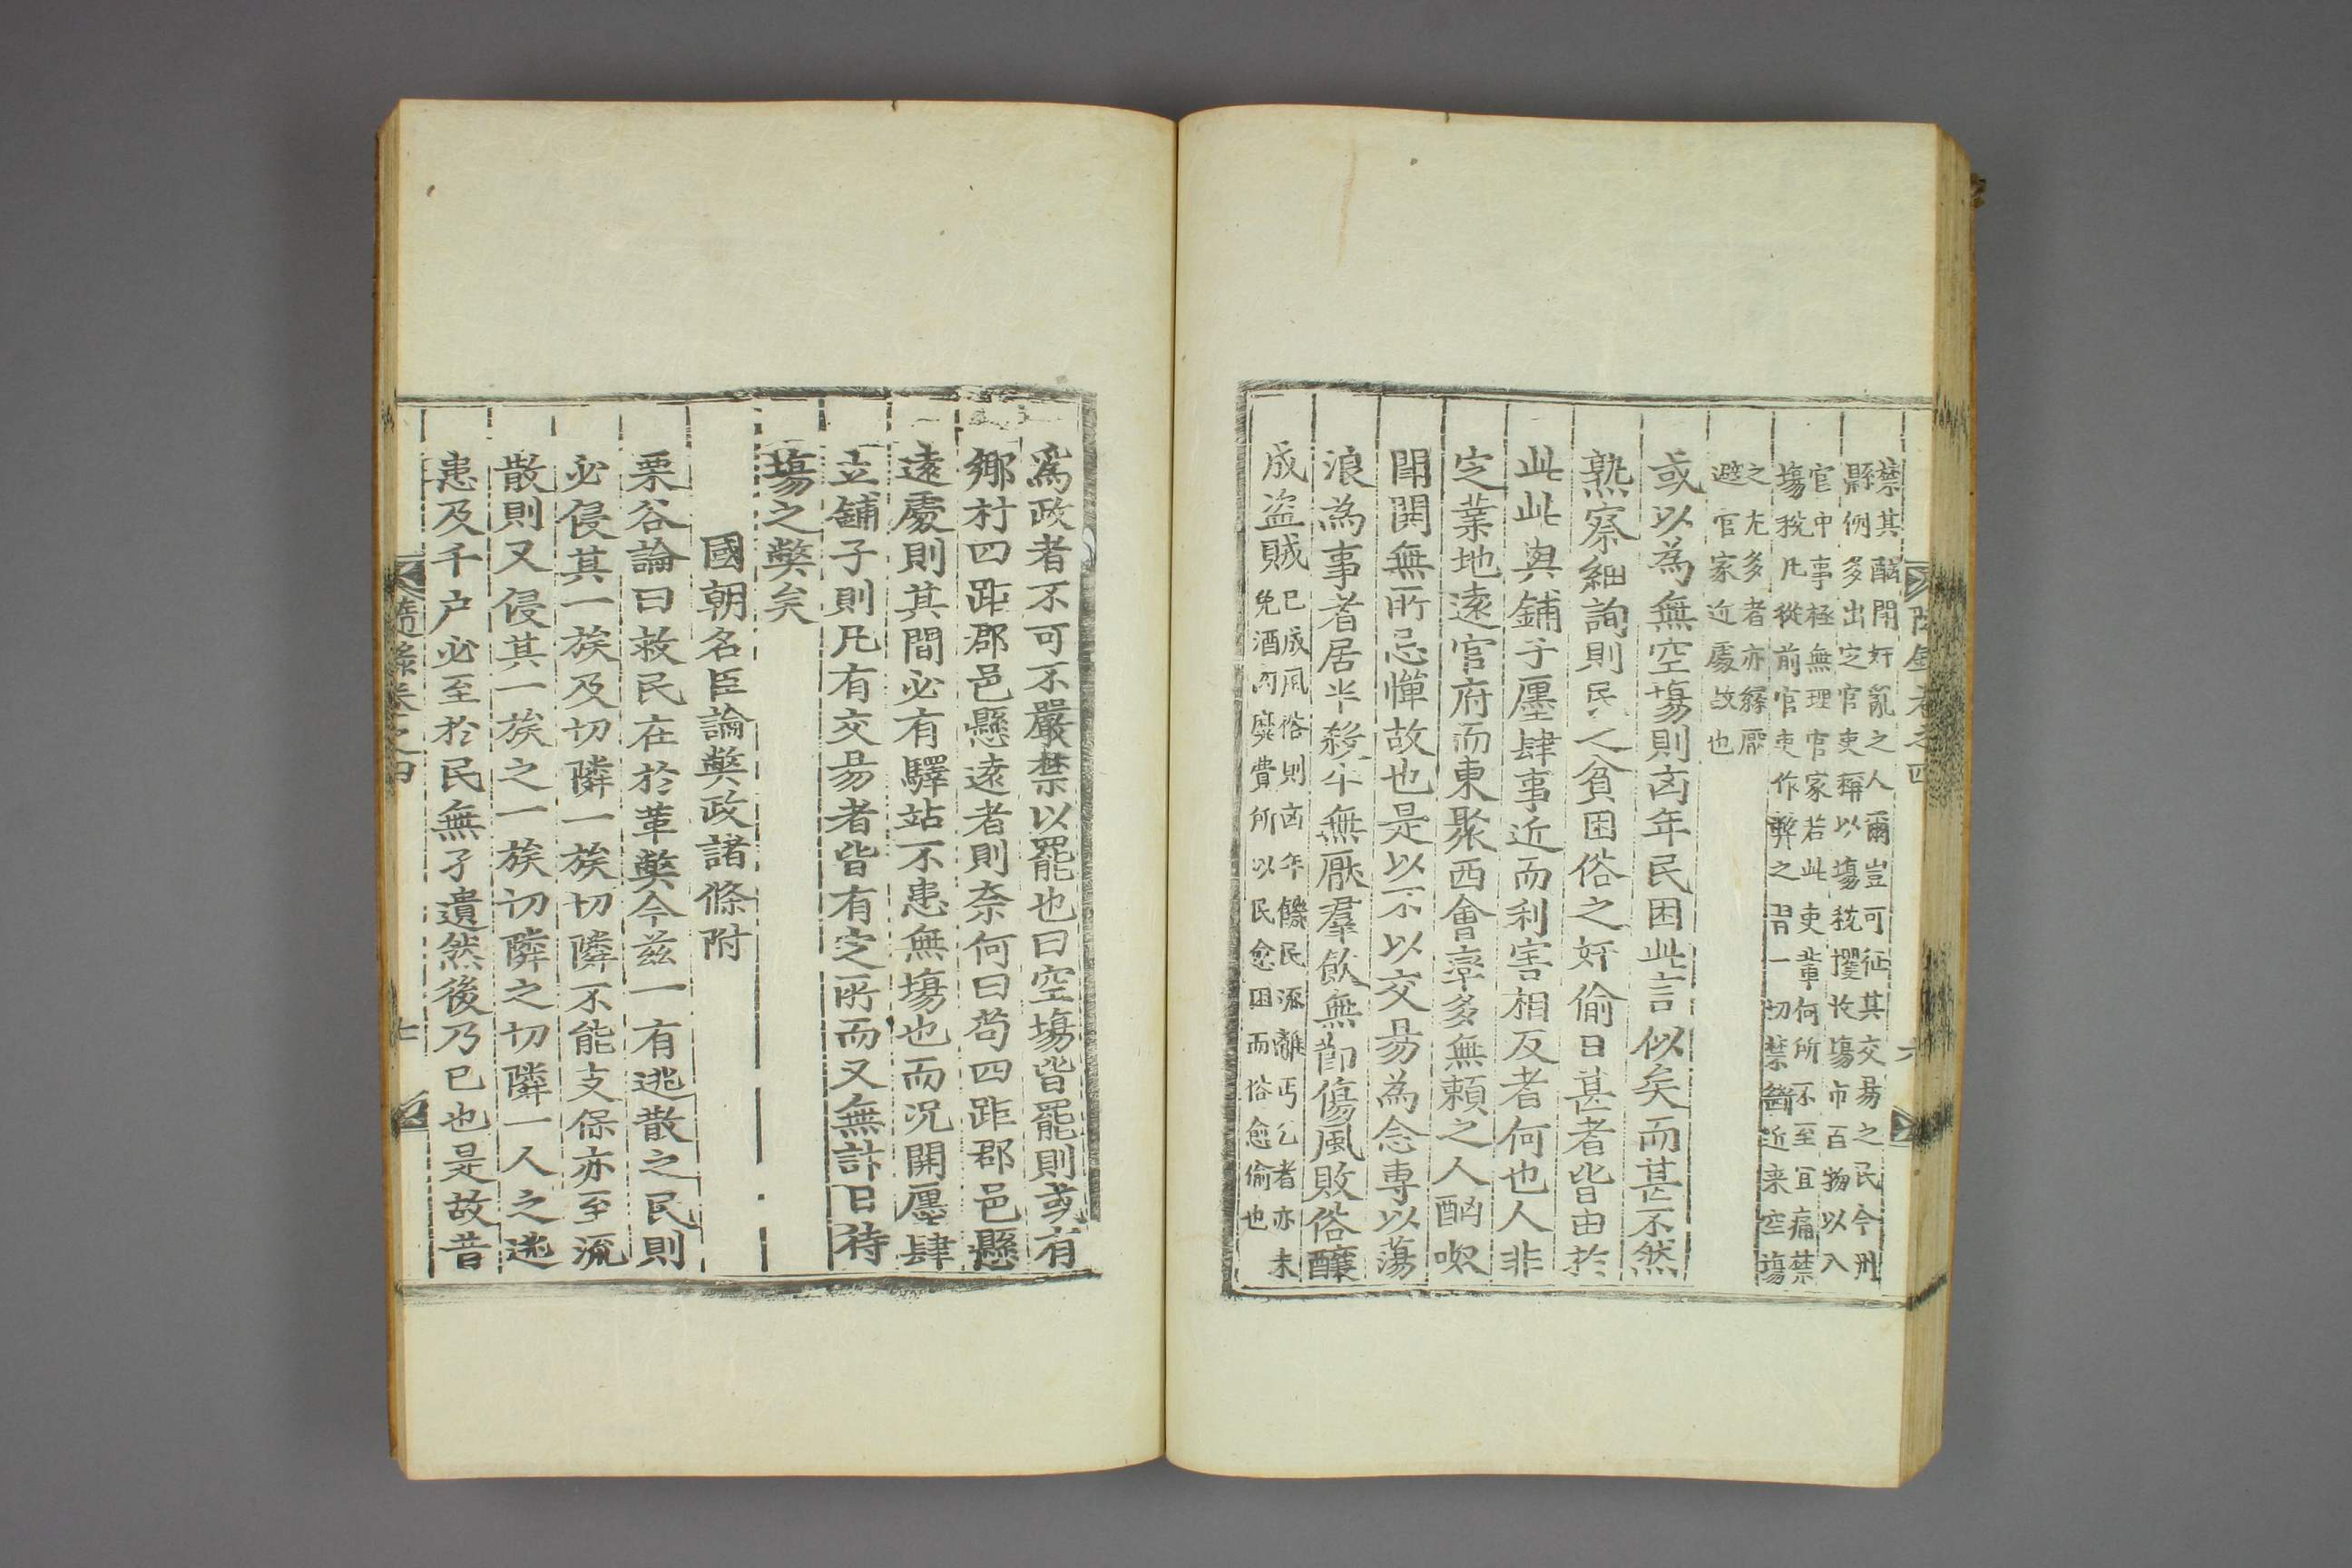 隨錄卷之四
六
禁其酗鬧奸亂之人爾豈可征其交易之民今刑
縣例多出定官吏稱以塲稅攫收塲市百物以入
官中事極無理官家若此吏輩何所不至宜痛禁
塲稅凡從前官吏作弊之習一切禁斷近来空塲
之尤多者亦繇厭
避官家近處故也
或以為無空塲則凶年民困此言似矣而甚不然
熟察細詢則民之貧困俗之奸偷日甚者皆由於
此此與鋪子廛肆事近而利害相反者何也人非
定業地遠官府而東聚西會率多無賴之人酗呶
閙鬨無所忌憚故也是以不以交易為念專以蕩
浪為事者居半殺牛無厭羣飲無節傷風敗俗釀
成盜賊
已成風俗則凶年饑民流離丐乞者亦未
免酒肉糜費所以民愈困而俗愈偷也
爲政者不可不嚴禁以罷也曰空塲皆罷則或有
鄉村四距郡邑懸遠者則奈何曰苟四距郡邑懸
遠處則其間必有驛站不患無塲也而况開廛肆
立鋪子則凡有交易者皆有定所而又無許日待
塲之獘矣
國朝名臣論獘政諸條附
栗谷論曰救民在於革獘今兹一有逃散之民則
必侵其一族及切隣一族切隣不能支保亦至流
散則又侵其一族之一族切隣之切隣一人之逃
患及千户必至於民無孑遺然後乃已也是故昔
隨錄卷之四
七